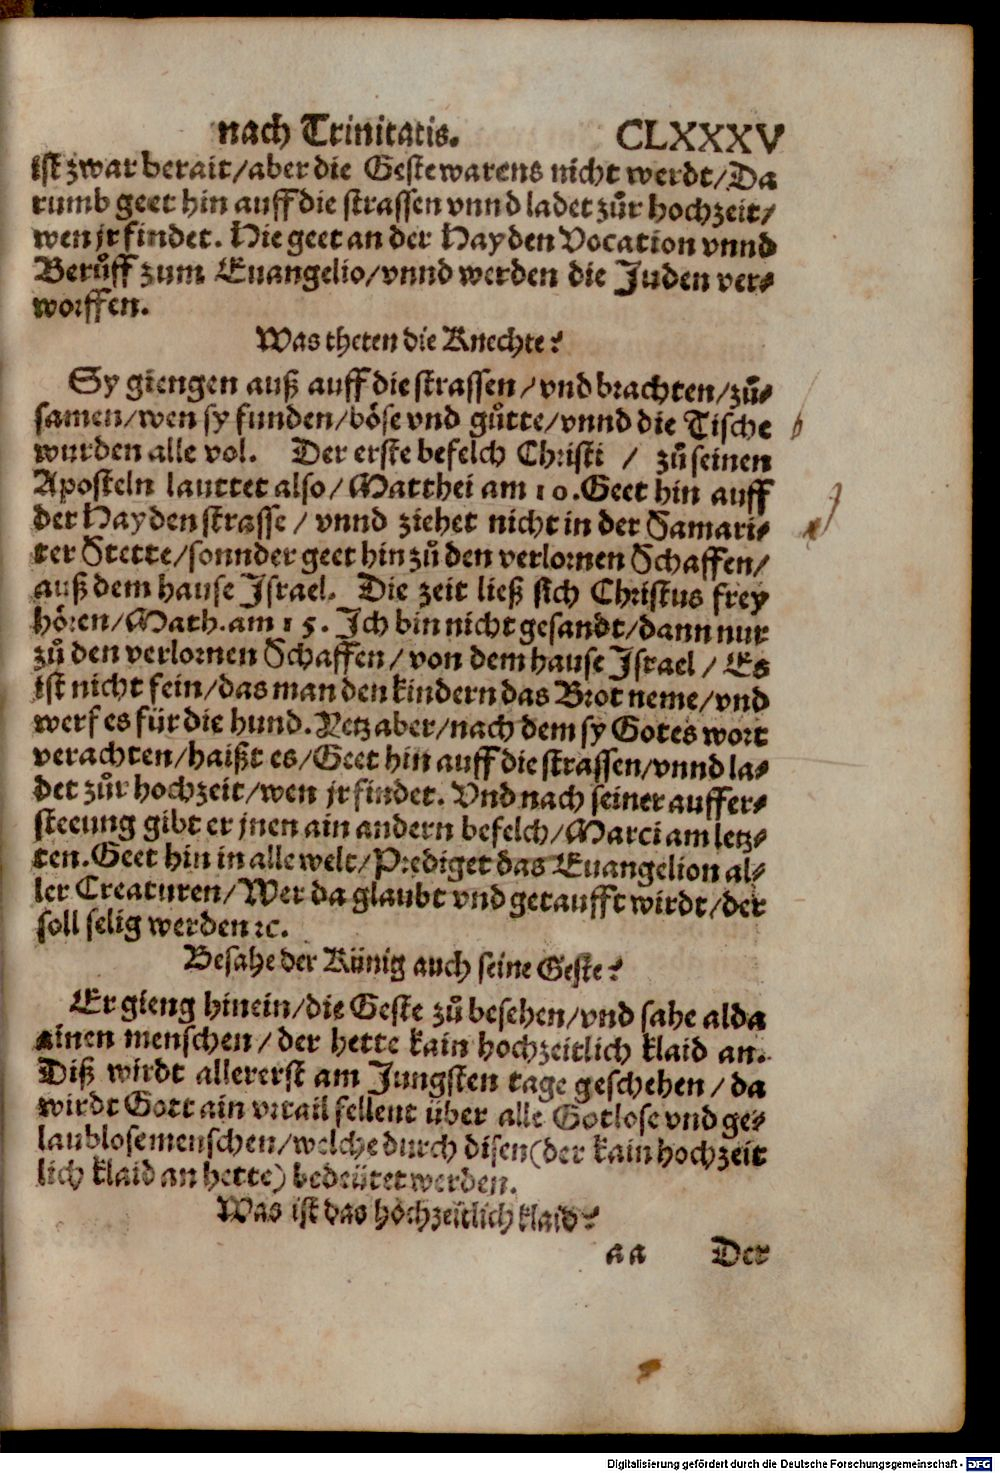 nach Trinitatis. CLXXXV
ist zwar berait/aber die Geste warens nicht werdt/Da
rumb geet hin auff die strassen vnnd ladet zůr hochzeit/
wen jr findet. Hie geet an der Hayden Vocation vnnd
Berůff zum Euangelio/vnnd werden die Juden ver⸗
worffen.
Was theten die Knechte?
Sy giengen auß auff die strassen/vnd brachten/zů⸗
samen/wen sy funden/böse vnd gůtte/vnnd die Tische
wurden alle vol. Der erste befelch Christi / zů seinen
Aposteln lauttet also/Matthei am 10. Geet hin auff
der Hayden strasse/vnnd ziehet nicht in der Samari⸗
ter Stette/sonnder geet hin zů den verlornen Schaffen/
auß dem hause Israel. Die zeit ließ sich Christus frey
hören/Math. am 15. Ich bin nicht gesandt/dann nur
zů den verlornen Schaffen/von dem hause Israel/Es
ist nicht fein/das man den kindern das Brot neme/vnd
werf es für die hund. Yetz aber/nach dem sy Gotes wort
verachten/haißt es/Geet hin auff die strassen/vnnd la⸗
det zůr hochzeit/wen jr findet. Vnd nach seiner auffer⸗
steeung gibt er jnen ain andern befelch/Marci am letz⸗
ten. Geet hin in alle welt/Prediget das Euangelion al⸗
ler Creaturen/Wer da glaubt vnd getaufft wirdt/der
soll selig werden ꝛc.
Besahe der Künig auch seine Geste?
Er gieng hinein/die Geste zů besehen/vnd sahe alda
ainen menschen/der hette kain hochzeitlich klaid an.
Diß wirdt allererst am Jungsten tage geschehen/da
wirdt Gott ain vrtail fellent über alle Gotlose vnd ge⸗
laublose menschen/welche durch disen (der kain hochzeit
lich klaid an hette) bedeütet werden.
Was ist das hochzeitlich klaid?
aa Der
Digitalisierung gefördert durch die Deutsche Forschungsgemeinschaft - DFG